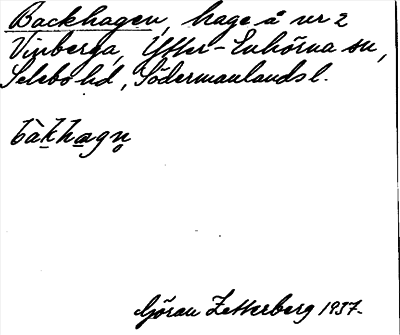 Backhagen, hage å nr 2
Vinberga, Ytter-Enhörna sn,
Selebo hd, Södermanlands l.
bàkhagn̥
Göran Zetterberg 1937.